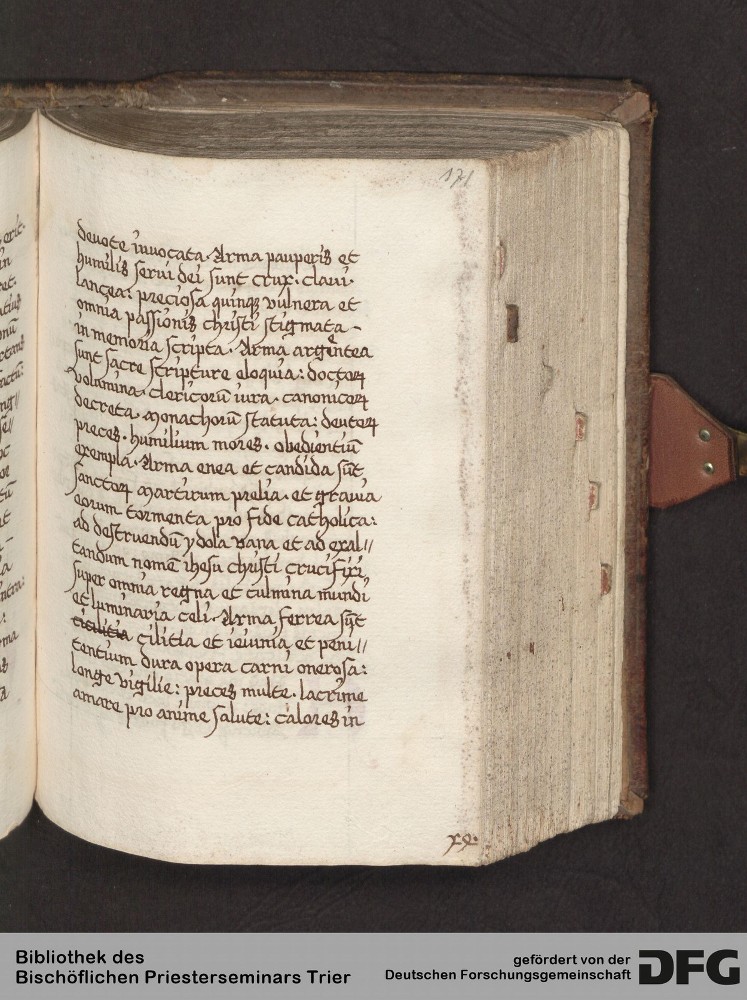 171
deuote inuocata. Arma pauperis et
humilis serui dei sunt crux. claui.
lançea: preciosa quinqȝ vulnera et
omnia passionis christi stigmata -
in memoria scripta. Arma argentea
sunt sacre scripture eloquia: doctoꝝ
volumina. clericorū iura. canonicoꝝ
decreta. monachorū statuta: deuotoꝝ
preces. humilium mores. obedientiū
exempla. Arma enea et candida sūt
sanctoꝝ martirum prelia. et grauia
eorum tormenta pro fide catholica:
ad destruendū ydola vana et ad exal//
tandum nomē ihesu christi crucifixi
super omnia regna et culmina mundi
et luminaria celi. Arma ferrea sūt
çilitia et ieiunia et peni//
tentium dura opera carni onerosa:
longe vigilie: preces multe. lacrime
amare pro anime salute: calores in
Bibliothek des
Bischöflichen Priesterseminars Trier
gefördert von der
Deutschen Forschungsgemeinschaft
DFG